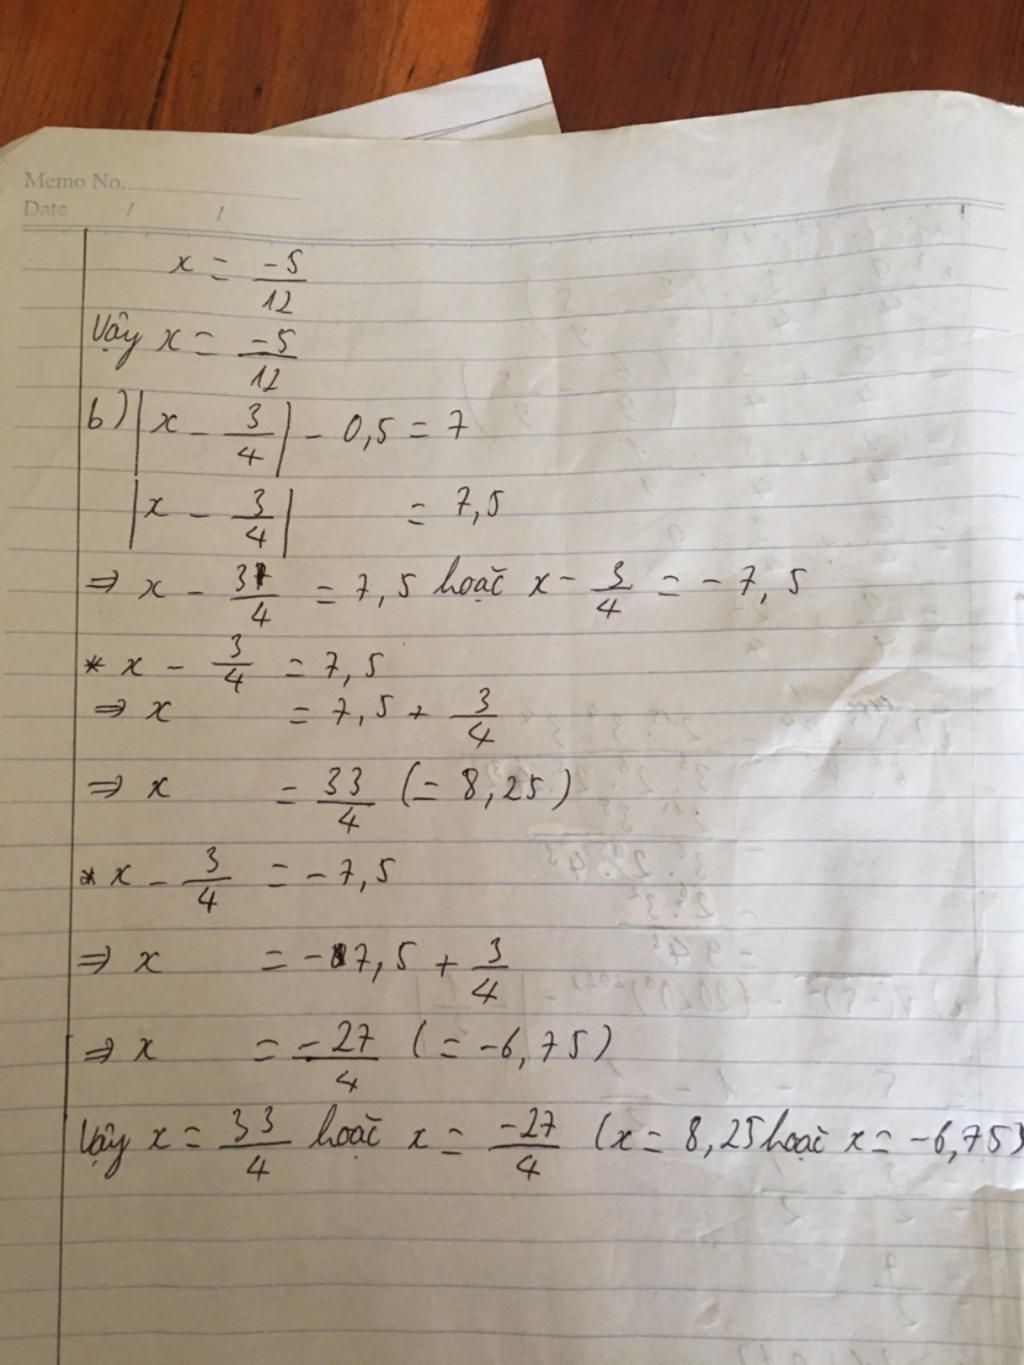 Memo No.
Date / /
x = -5/12
Vậy x = -5/12
b) |x - 3/4| - 0,5 = 7
|x - 3/4| = 7,5
⇒ x - 3/4 = 7,5 hoặc x - 3/4 = -7,5
* x - 3/4 = 7,5
⇒ x = 7,5 + 3/4
⇒ x = 33/4 (= 8,25)
* x - 3/4 = -7,5
⇒ x = -7,5 + 3/4
⇒ x = -27/4 (= -6,75)
Vậy x = 33/4 hoặc x = -27/4 (x = 8,25 hoặc x = -6,75)